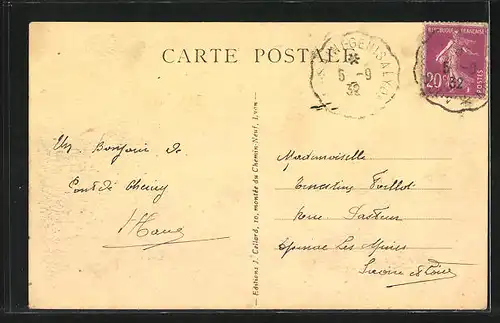 CARTE POSTALE
5 -9
32
REPUBLIQUE FRANÇAISE
20c
POSTES
5 -9
32
Un Bonjour de
Pont de Cheruy
Editions J. Cellard, 10, montée du Chemin-Neuf, Lyon
Mademoiselle
Ernestine
Rue Pasteur
Epinac Les Mines
Saône et Loire